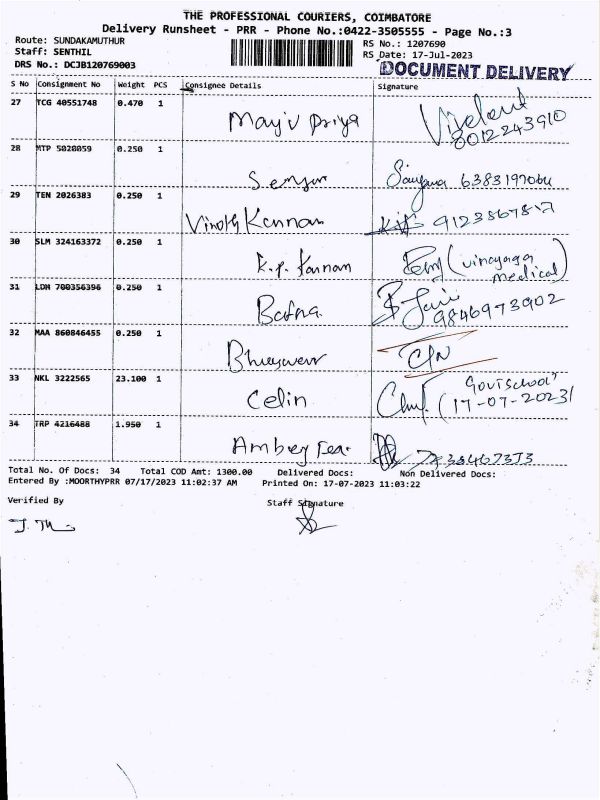 THE PROFESSIONAL COURIERS, COIMBATORE
Delivery Runsheet - PRR - Phone No.:0422-3505555 - Page No.:3
Route: SUNDAKAMUTHUR
RS No.: 1207690
Staff: SENTHIL
RS Date: 17-Jul-2023
DRS No.: DCJB120769003
DOCUMENT DELIVERY
S No Consignment No Weight PCS Consignee Details Signature
27 TCG 40551748 0.470 1
Priya
8012243910
28 MTP 5028059 0.250 1
29 TEN 2026383 0.250 1
Vinoth Kannan
30 SLM 324163372 0.250 1
K.P. Kannan (vinayaga medical)
31 LDM 700356396 0.250 1
Bafna
9846973902
32 MAA 860846455 0.250 1
C/N
33 NKL 3222565 23.100 1
Celin
17-07-2023
34 TRP 4216488 1.950 1
Total No. Of Docs: 34 Total COD Amt: 1300.00 Delivered Docs: Non Delivered Docs:
Entered By :MOORTHYPRR 07/17/2023 11:02:37 AM Printed On: 17-07-2023 11:03:22
Verified By Staff Signature